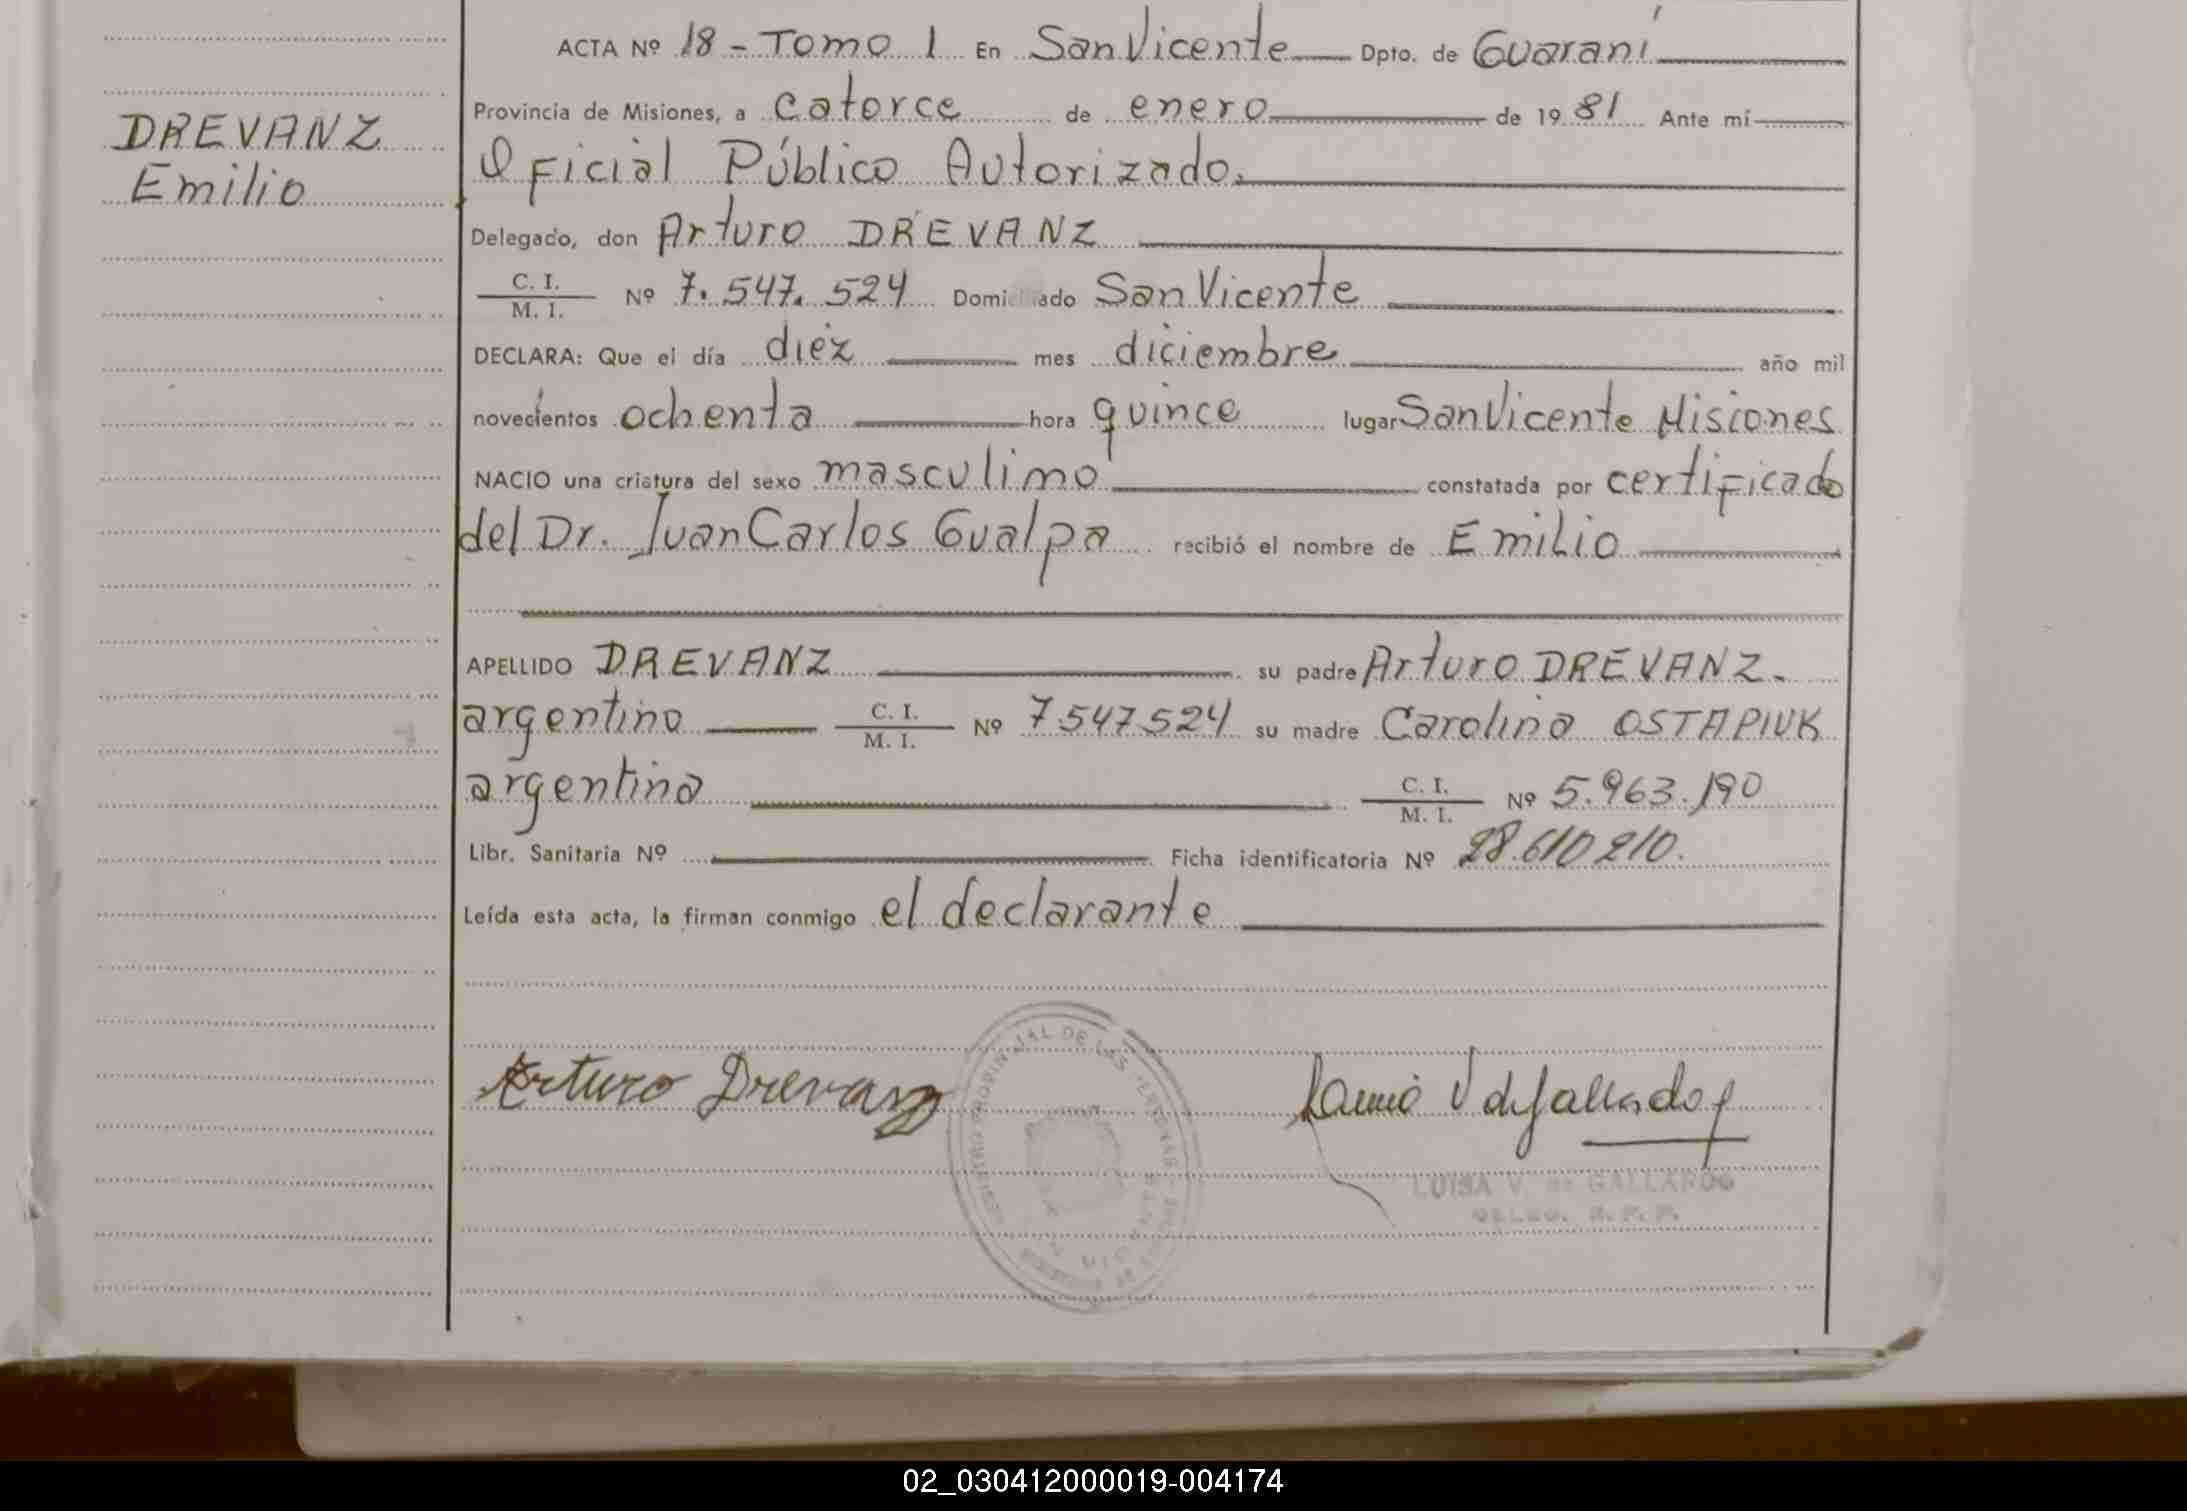 DREVANZ
Emilio
ACTA Nº 18 - Tomo 1 En San Vicente Dpto. de Guaraní
Provincia de Misiones, a catorce de enero de 1981 Ante mí
Oficial Público Autorizado.
Delegado, don Arturo DREVANZ
C. I.
M. I. Nº 7.547.524 Domiciliado San Vicente
DECLARA: Que el día diez mes diciembre año mil
novecientos ochenta hora quince lugar San Vicente Misiones
NACIO una criatura del sexo masculino constatada por certificado
del Dr. Juan Carlos Gualpa recibió el nombre de Emilio
APELLIDO DREVANZ su padre Arturo DREVANZ.
argentino C. I. M. I. Nº 7547524 su madre Carolina OSTAPIUK
argentina C. I. M. I. Nº 5.963.190
Libr. Sanitaria Nº Ficha identificatoria Nº 28.610210.
Leída esta acta, la firman conmigo el declarante
Arturo Drevanz
REGISTRO PROVINCIAL DE LAS PERSONAS
LUISA V. de GALLARDO
DELEG. R. P. P.
02_030412000019-004174